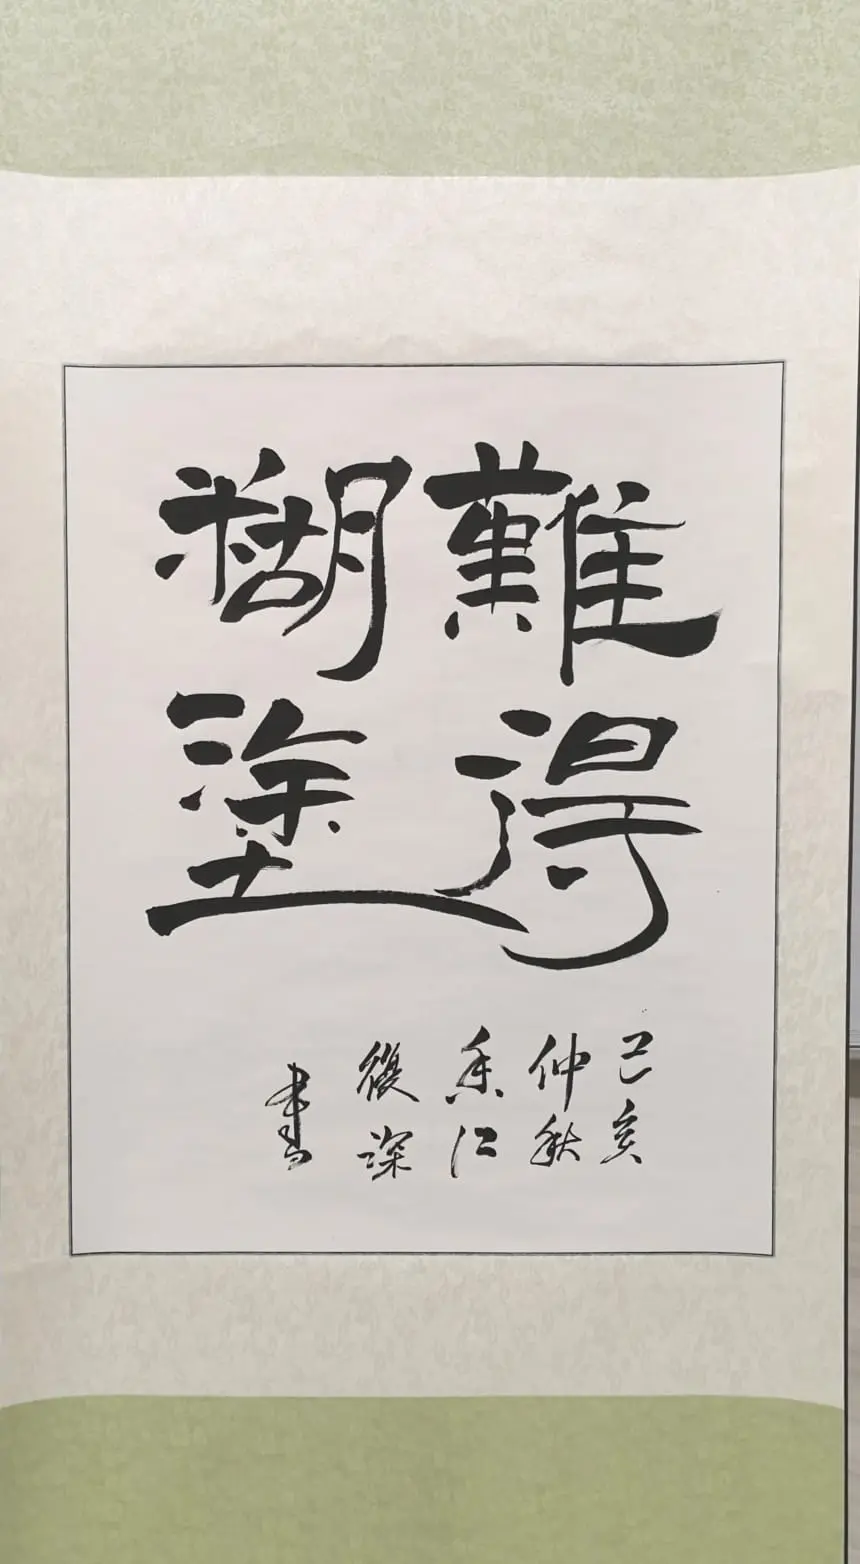 難得
糊塗
己亥
仲秋
香江
復深
書